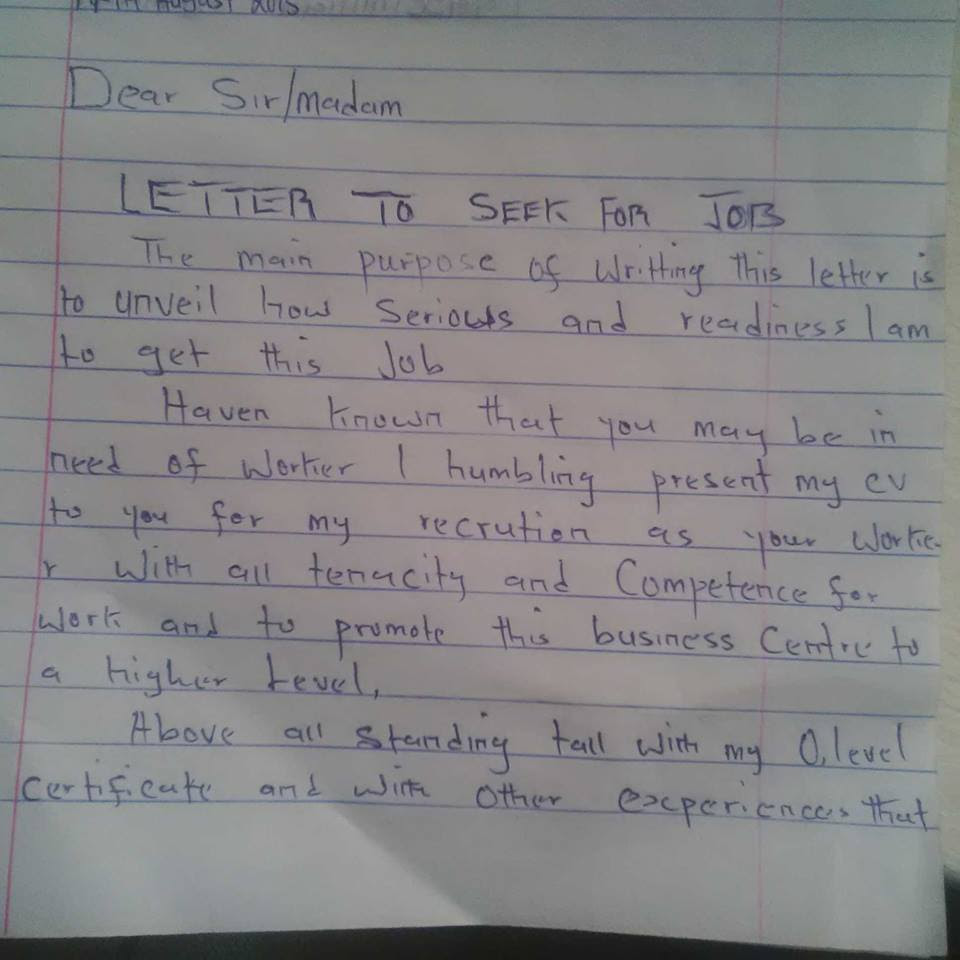 August 2015
Dear Sir/madam
LETTER TO SEEK FOR JOB
The main purpose of writting this letter is
to unveil how Seriouts and readiness I am
to get this Job
Haven known that you may be in
need of worker I humbling present my cv
to you for my recrution as your worke
r with all tenacity and Competence for
work and to promote this business Centre to
a higher Level,
Above all standing tall with my O,level
certificate and with other experiences that